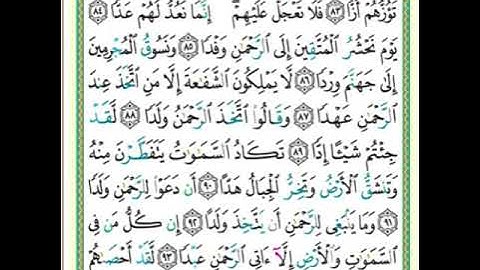 تَؤُزُّهُمْ أَزًّا ٨٣ فَلَا تَعْجَلْ عَلَيْهِمْ ۖ إِنَّمَا نَعُدُّ لَهُمْ عَدًّا ٨٤
يَوْمَ نَحْشُرُ الْمُتَّقِينَ إِلَى الرَّحْمَٰنِ وَفْدًا ٨٥ وَنَسُوقُ الْمُجْرِمِينَ
إِلَىٰ جَهَنَّمَ وِرْدًا ٨٦ لَّا يَمْلِكُونَ الشَّفَاعَةَ إِلَّا مَنِ اتَّخَذَ عِندَ
الرَّحْمَٰنِ عَهْدًا ٨٧ وَقَالُوا اتَّخَذَ الرَّحْمَٰنُ وَلَدًا ٨٨ لَّقَدْ
جِئْتُمْ شَيْئًا إِدًّا ٨٩ تَكَادُ السَّمَاوَاتُ يَتَفَطَّرْنَ مِنْهُ
وَتَنشَقُّ الْأَرْضُ وَتَخِرُّ الْجِبَالُ هَدًّا ٩٠ أَن دَعَوْا لِلرَّحْمَٰنِ وَلَدًا
٩١ وَمَا يَنبَغِي لِلرَّحْمَٰنِ أَن يَتَّخِذَ وَلَدًا ٩٢ إِن كُلُّ مَن فِي
السَّمَاوَاتِ وَالْأَرْضِ إِلَّا آتِي الرَّحْمَٰنِ عَبْدًا ٩٣ لَّقَدْ أَحْصَاهُمْ